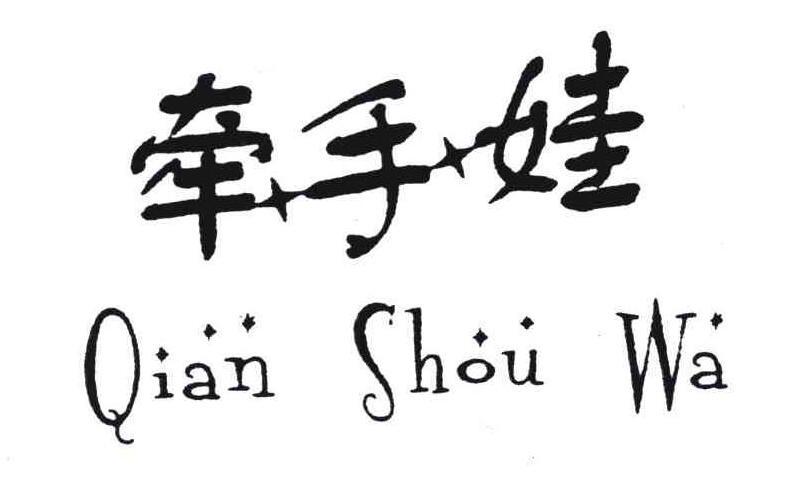 牵手娃
Qian Shou Wa